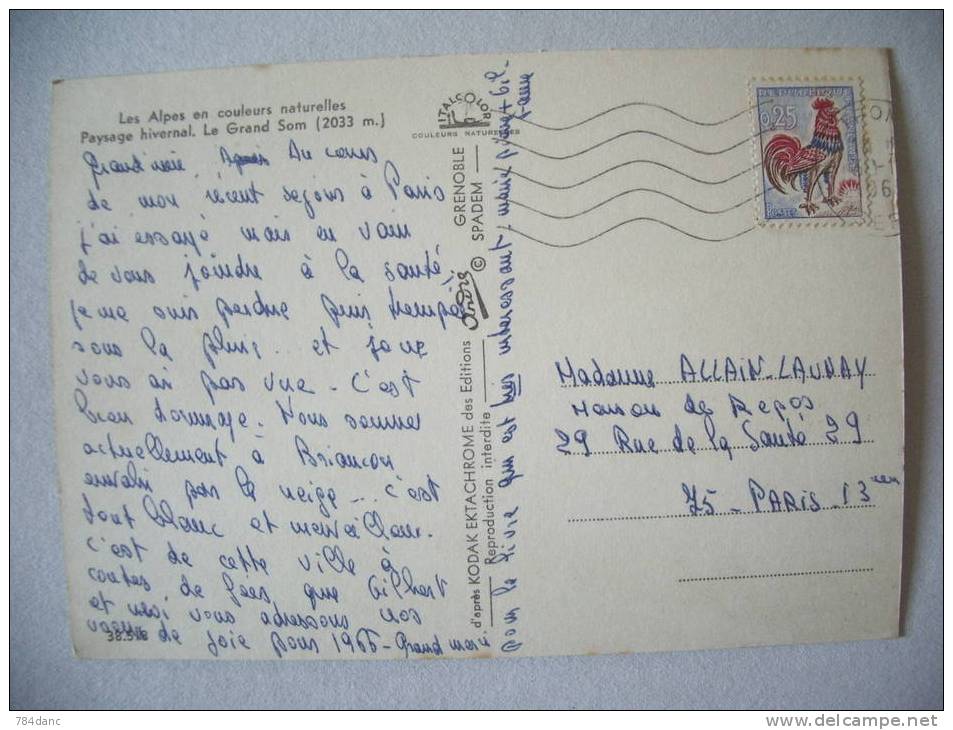 Les Alpes en couleurs naturelles
Paysage hivernal. Le Grand Som (2033 m.)
Au cours
de mon récent sejour à Paris
j'ai essayé mais en vain
de vous joindre à la santé.
je me suis perdue puis trempée
sous la pluie.. et je ne
vous ai pas vue - C'est
bien dommage. Nous sommes
actuellement à Briancon
envahi par la neige... c'est
tout blanc et merveilleux.
C'est de cette ville à
contes de fées que Gilbert
et moi vous adressons nos
voeux de joie pour 1966 - Grand merci
pour le livre qui est très interessant.
38.518
ITALCOLOR
COULEURS NATURELLES
GRENOBLE
SPADEM
©
d'après KODAK EKTACHROME des Editions
Reproduction interdite
0,25
POSTES
Madame ALLAIN-LAUNAY
Maison de Repos
29 Rue de la Santé 29
75 - PARIS - 13
784danc
www.delcampe.net